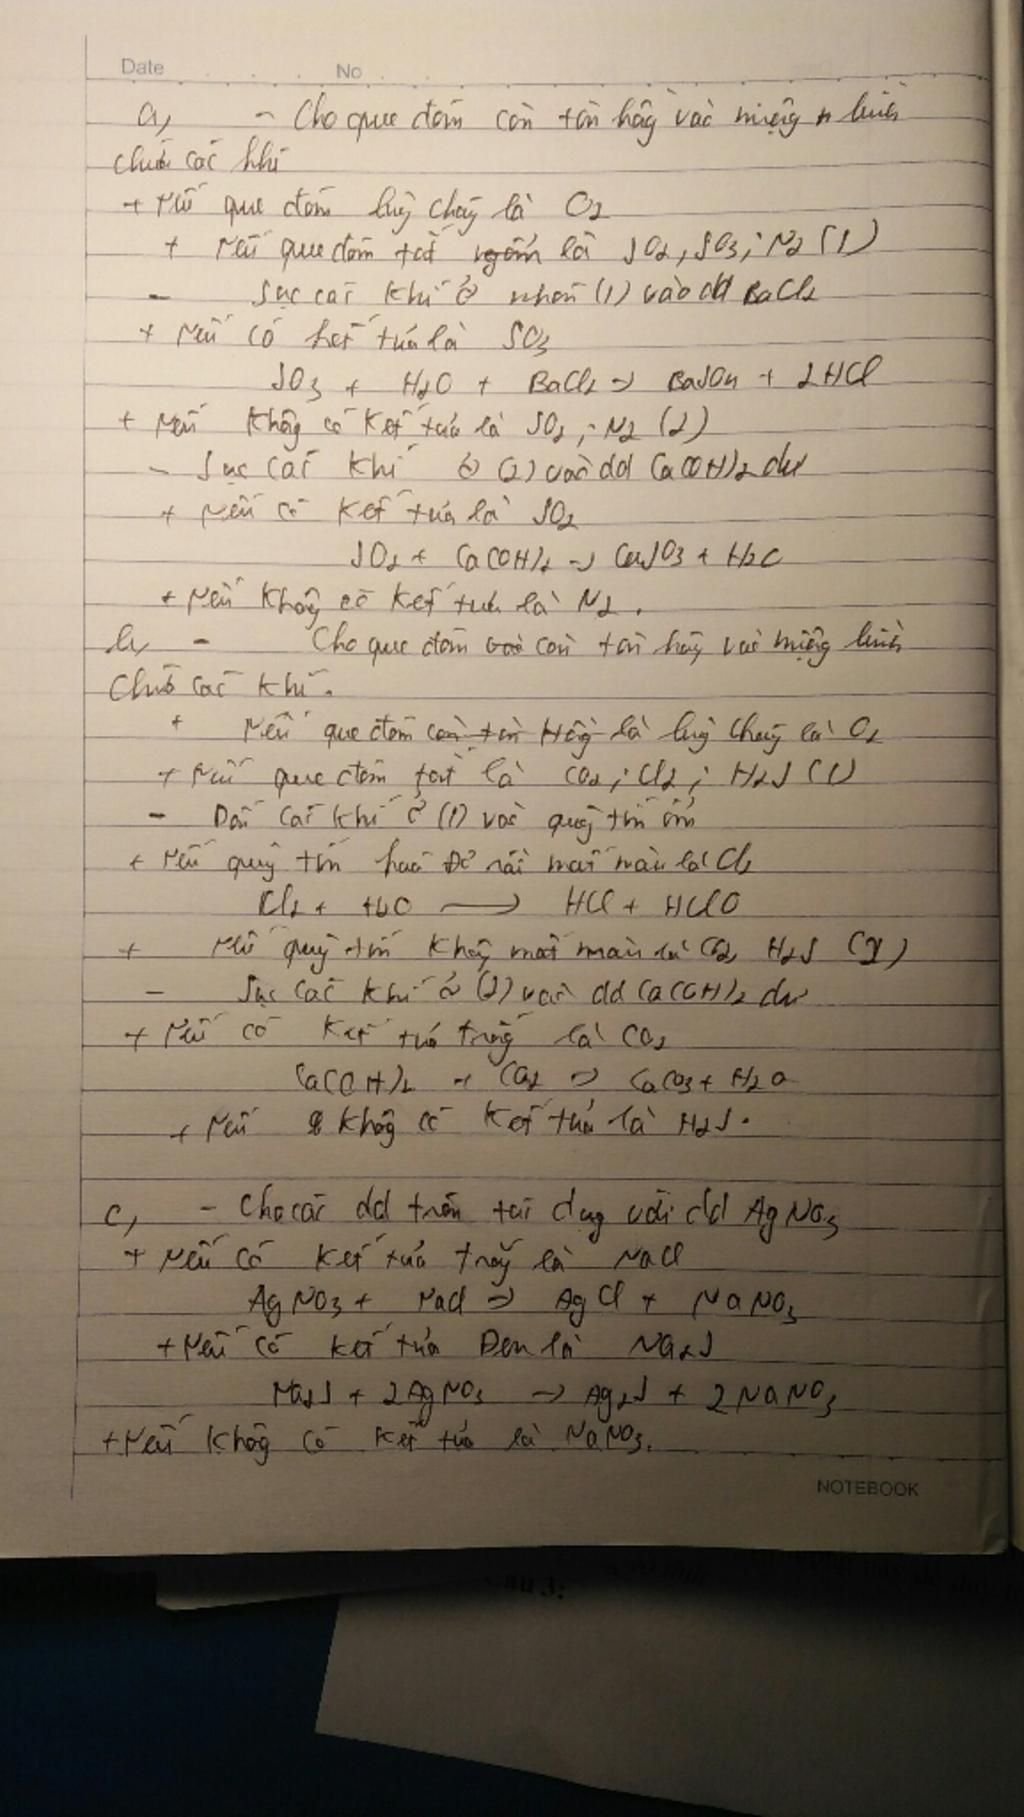 Date No
a, - Cho que đóm còn tàn hồng vào miệng bình
chứa các khí
+ Nếu que đóm bùng cháy là O2
+ Nếu que đóm tắt là SO2, SO3; N2 (1)
- Sục các khí ở nhóm (1) vào dd BaCl2
+ Nếu có kết tủa là SO3
SO3 + H2O + BaCl2 → BaSO4 + 2HCl
+ Nếu không có kết tủa là SO2; N2 (2)
- Sục các khí ở (2) vào dd Ca(OH)2 dư
+ Nếu có kết tủa là SO2
SO2 + Ca(OH)2 → CaSO3 + H2O
+ Nếu không có kết tủa là N2.
b, - Cho que đóm còn tàn hồng vào miệng bình
chứa các khí.
+ Nếu que đóm bùng cháy là O2
+ Nếu que đóm tắt là CO2; Cl2; H2S (1)
- Dẫn các khí ở (1) vào quỳ tím ẩm
+ Nếu quỳ tím hoá đỏ rồi mất màu là Cl2
Cl2 + H2O → HCl + HClO
+ Nếu quỳ tím không mất màu là CO2, H2S (2)
- Sục các khí ở (2) vào dd Ca(OH)2 dư
+ Nếu có kết tủa trắng là CO2
Ca(OH)2 + CO2 → CaCO3 + H2O
+ Nếu không có kết tủa là H2S.
c, - Cho các dd trên tác dụng với dd AgNO3
+ Nếu có kết tủa trắng là NaCl
AgNO3 + NaCl → AgCl + NaNO3
+ Nếu có kết tủa Đen là Na2S
Na2S + 2AgNO3 → Ag2S + 2NaNO3
+ Nếu không có kết tủa là NaNO3.
NOTEBOOK
Câu 3: